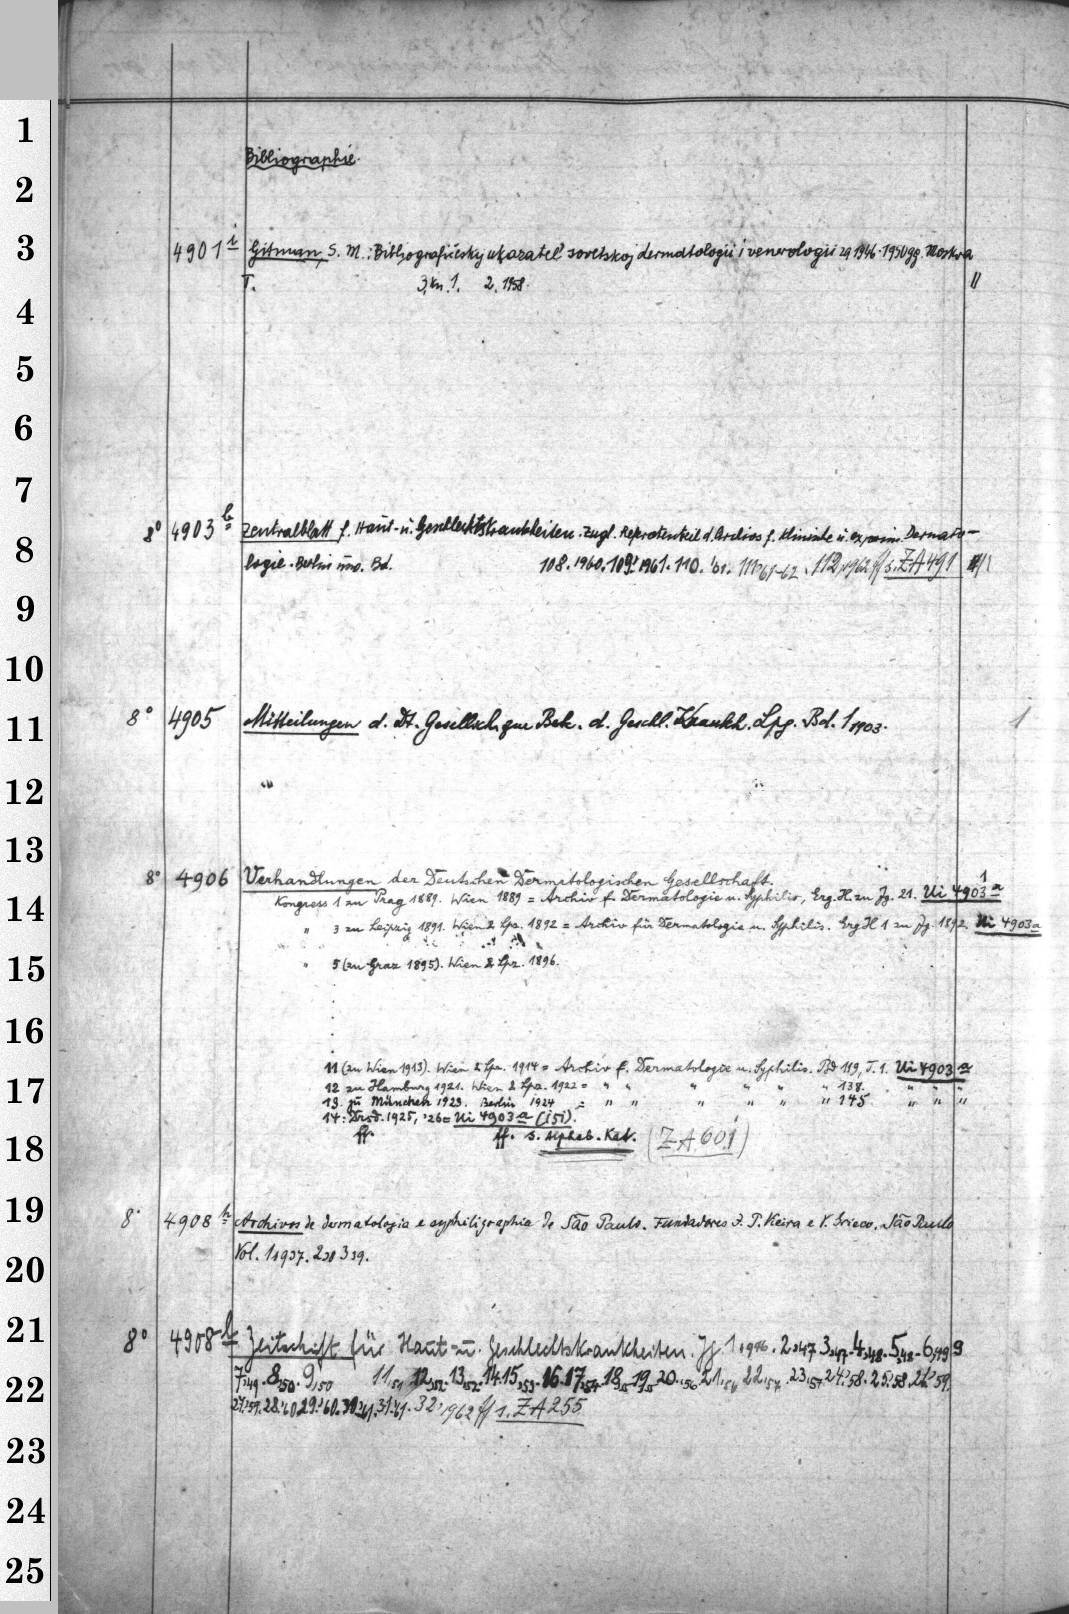 Bibliographie.
4901 i Gitman, S. M.: Bibliografičeskij ukazatel' sovetskoj dermatologii i venerologii za 1946-1950 gg. Moskva
T. 3, kn. 1. 2. 1958. //
8° 4903 b Zentralblatt f. Haut- u. Geschlechtskrankheiten. Zugl. Referatenteil d. Archivs f. klinische u. experim. Dermato-
logie. Berlin Bd. 108. 1960. 109. 1961. 110. '61. 111. 61-62. 112, 1962 ff s. ZA 491
8° 4905 Mitteilungen d. Dt. Gesellsch. zur Bek. d. Geschl. Krankh. Lpg. Bd. 1 1903. 1
" "
8° 4906 Verhandlungen der Deutschen Dermatologischen Gesellschaft. 1
Kongress 1 zu Prag 1889. Wien 1889 = Archiv f. Dermatologie u. Syphilis, Erg. H. zu Jg. 21. Ui 4903 a
" 3 zu Leipzig 1891. Wien & Lpz. 1892 = Archiv für Dermatologie u. Syphilis. Erg H 1 zu Jg. 1892. Ui 4903 a
" 5 (zu Graz 1895). Wien & Lpz. 1896.
11 (zu Wien 1913). Wien & Lpz. 1914 = Archiv f. Dermatologie u. Syphilis. Bd 119, T. 1. Ui 4903 a
12 zu Hamburg 1921. Wien & Lpz. 1922 = " " " " " " 138. " " "
13. zu München 1923. Berlin 1924 = " " " " " " 145 " " "
14: Drsd. 1925, '26 = Ui 4903 a (151).
ff. ff. s. Alphab. Kat. (ZA 601)
8° 4908 h Archivos de dermatologia e syphiligraphia de São Paulo. Fundadores J. P. Vieira e V. Grieco. São Paulo
Vol. 1 1937. 2 38 3 39.
8° 4908 l Zeitschrift für Haut- u. Geschlechtskrankheiten. Jg. 1 1946. 2,47 3,47. 4,48. 5,48. 6,49 9
7,49. 8,50. 9,50 11,51 12,52. 13,52. 14. 15,53. 16. 17,54. 18,55 19,55 20,56 21,56 22,57. 23,57 24,58. 25,58. 26,59.
27,59. 28,60 29,60. 30,61. 31,61. 32, 1962 ff s. ZA 255
1
2
3
4
5
6
7
8
9
10
11
12
13
14
15
16
17
18
19
20
21
22
23
24
25